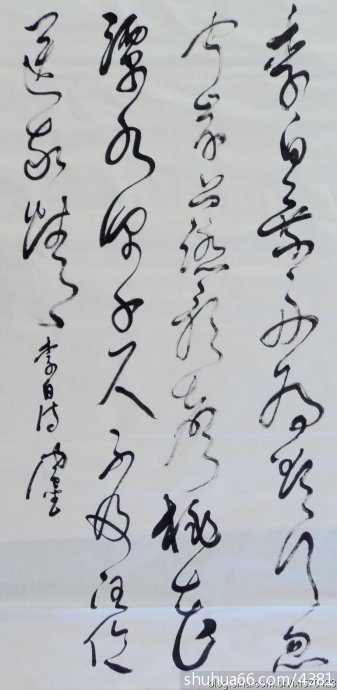 李白乘舟将欲行忽
闻岸上踏歌声桃花
潭水深千尺不及汪伦
送我情
李白诗
shuhua66.com/4381